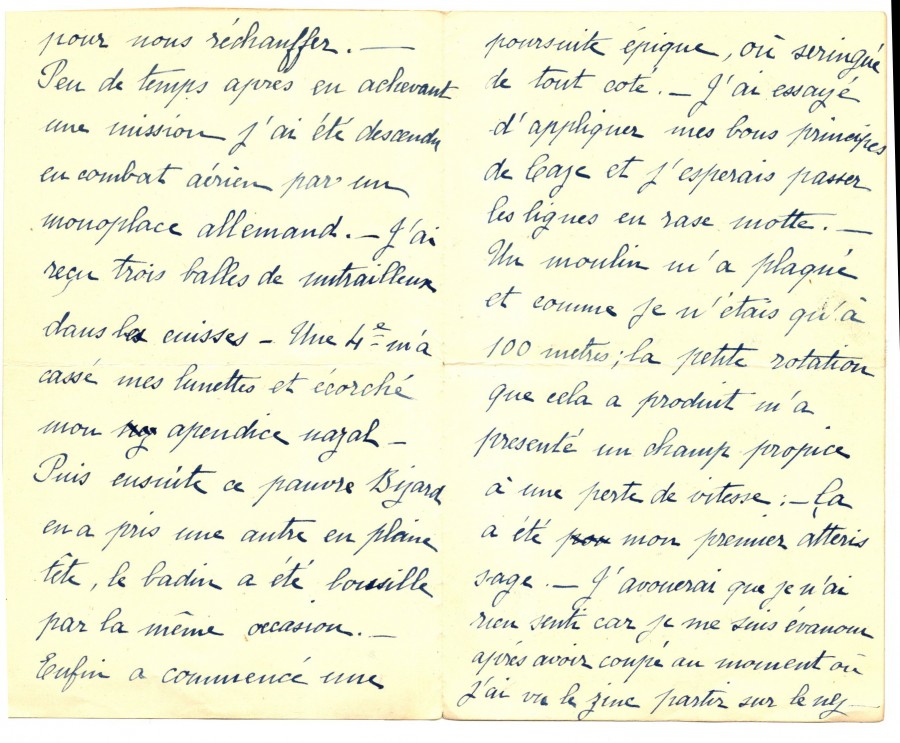 pour nous réchauffer. —
Peu de temps après en achevant
une mission j'ai été descendu
en combat aérien par un
monoplace allemand. — J'ai
reçu trois balles de mitrailleuse
dans les cuisses — Une 4e m'a
cassé mes lunettes et écorché
mon apendice nazal —
Puis ensuite ce pauvre Bizard
en a pris une autre en pleine
tête, le badin a été bousillé
par la même occasion. —
Enfin a commencé une
poursuite épique, où seringué
de tout coté. — J'ai essayé
d'appliquer mes bons principes
de Caze et j'esperais passer
les lignes en rase motte. —
Un moulin m'a plaqué
et comme je n'étais qu'à
100 metres; la petite rotation
que cela a produit m'a
presenté un champ propice
à une perte de vitesse. — Ça
a été mon premier atteris
sage. — J'avouerai que je n'ai
rien senti car je me suis évanoui
après avoir coupé au moment où
j'ai vu le zinc partir sur le nez —